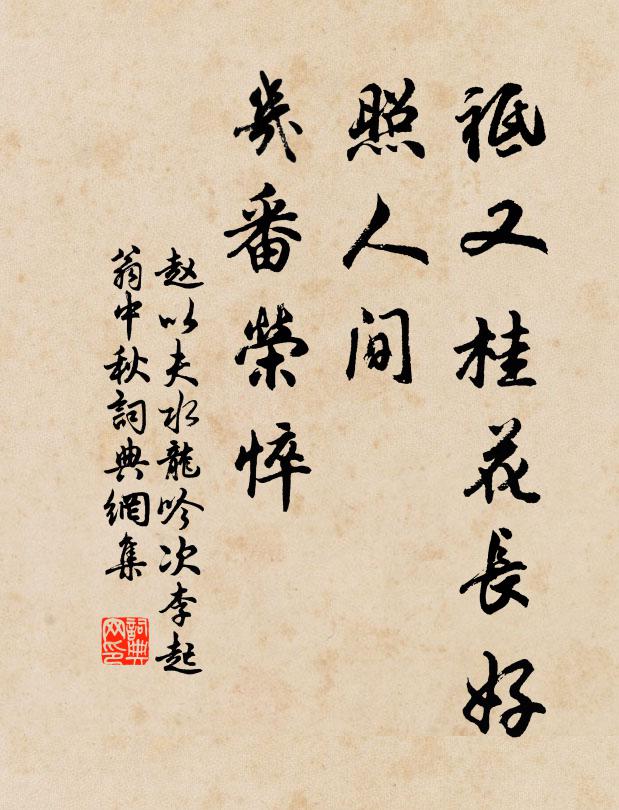 祗又桂花長好
照人間
幾番榮悴
赵以夫水龍吟次李起
翁中秋詞典網集
詞典
网印